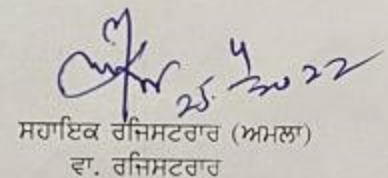 25.4/2022
ਸਹਾਇਕ ਰਜਿਸਟਰਾਰ (ਅਮਲਾ)
ਵਾ. ਰਜਿਸਟਰਾਰ